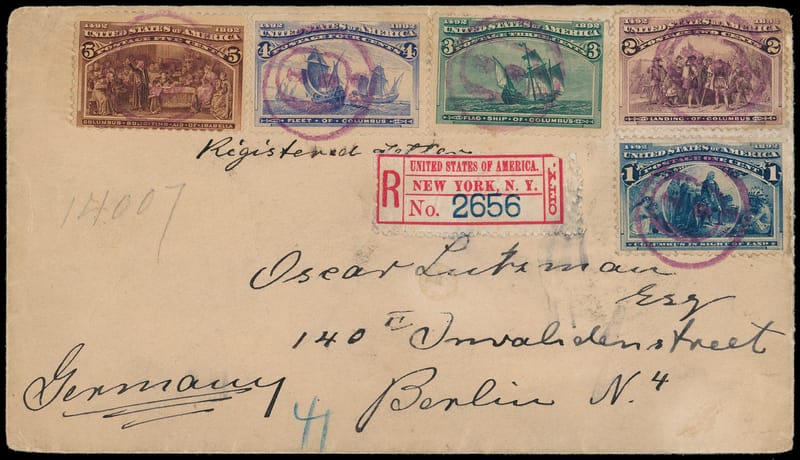 1492 1892
UNITED STATES OF AMERICA
POSTAGE FIVE CENTS
5 5
COLUMBUS SOLICITING AID OF ISABELLA
1492 1892
UNITED STATES OF AMERICA
POSTAGE FOUR CENTS
4 4
FLEET OF COLUMBUS
1492 1892
UNITED STATES OF AMERICA
POSTAGE THREE CENTS
3 3
FLAG SHIP OF COLUMBUS
1492 1892
UNITED STATES OF AMERICA
POSTAGE TWO CENTS
2 2
LANDING OF COLUMBUS
1492 1892
UNITED STATES OF AMERICA
POSTAGE ONE CENT
1 1
COLUMBUS IN SIGHT OF LAND
Registered Letter
UNITED STATES OF AMERICA.
R NEW YORK, N. Y.
No. 2656
14007
Oscar Lutzman
Esq
140 II Invalidenstreet
Berlin N. 4
Germany
41